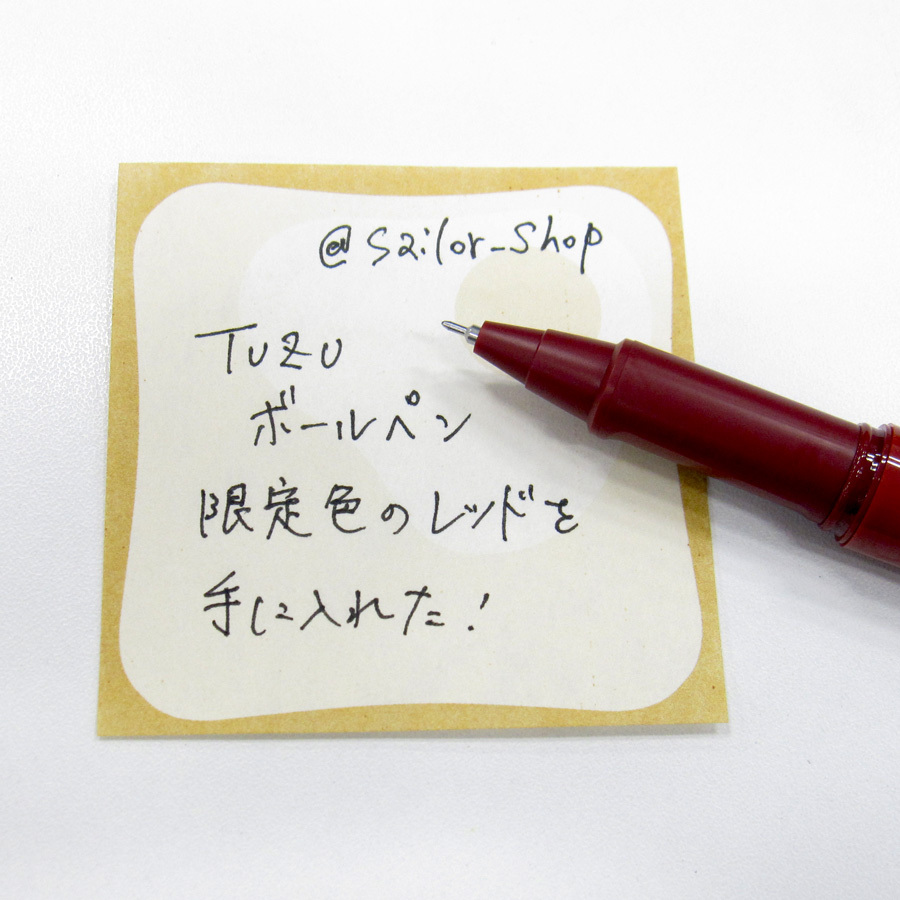 @sailor_shop
TUZU
ボールペン
限定色のレッドを
手に入れた!